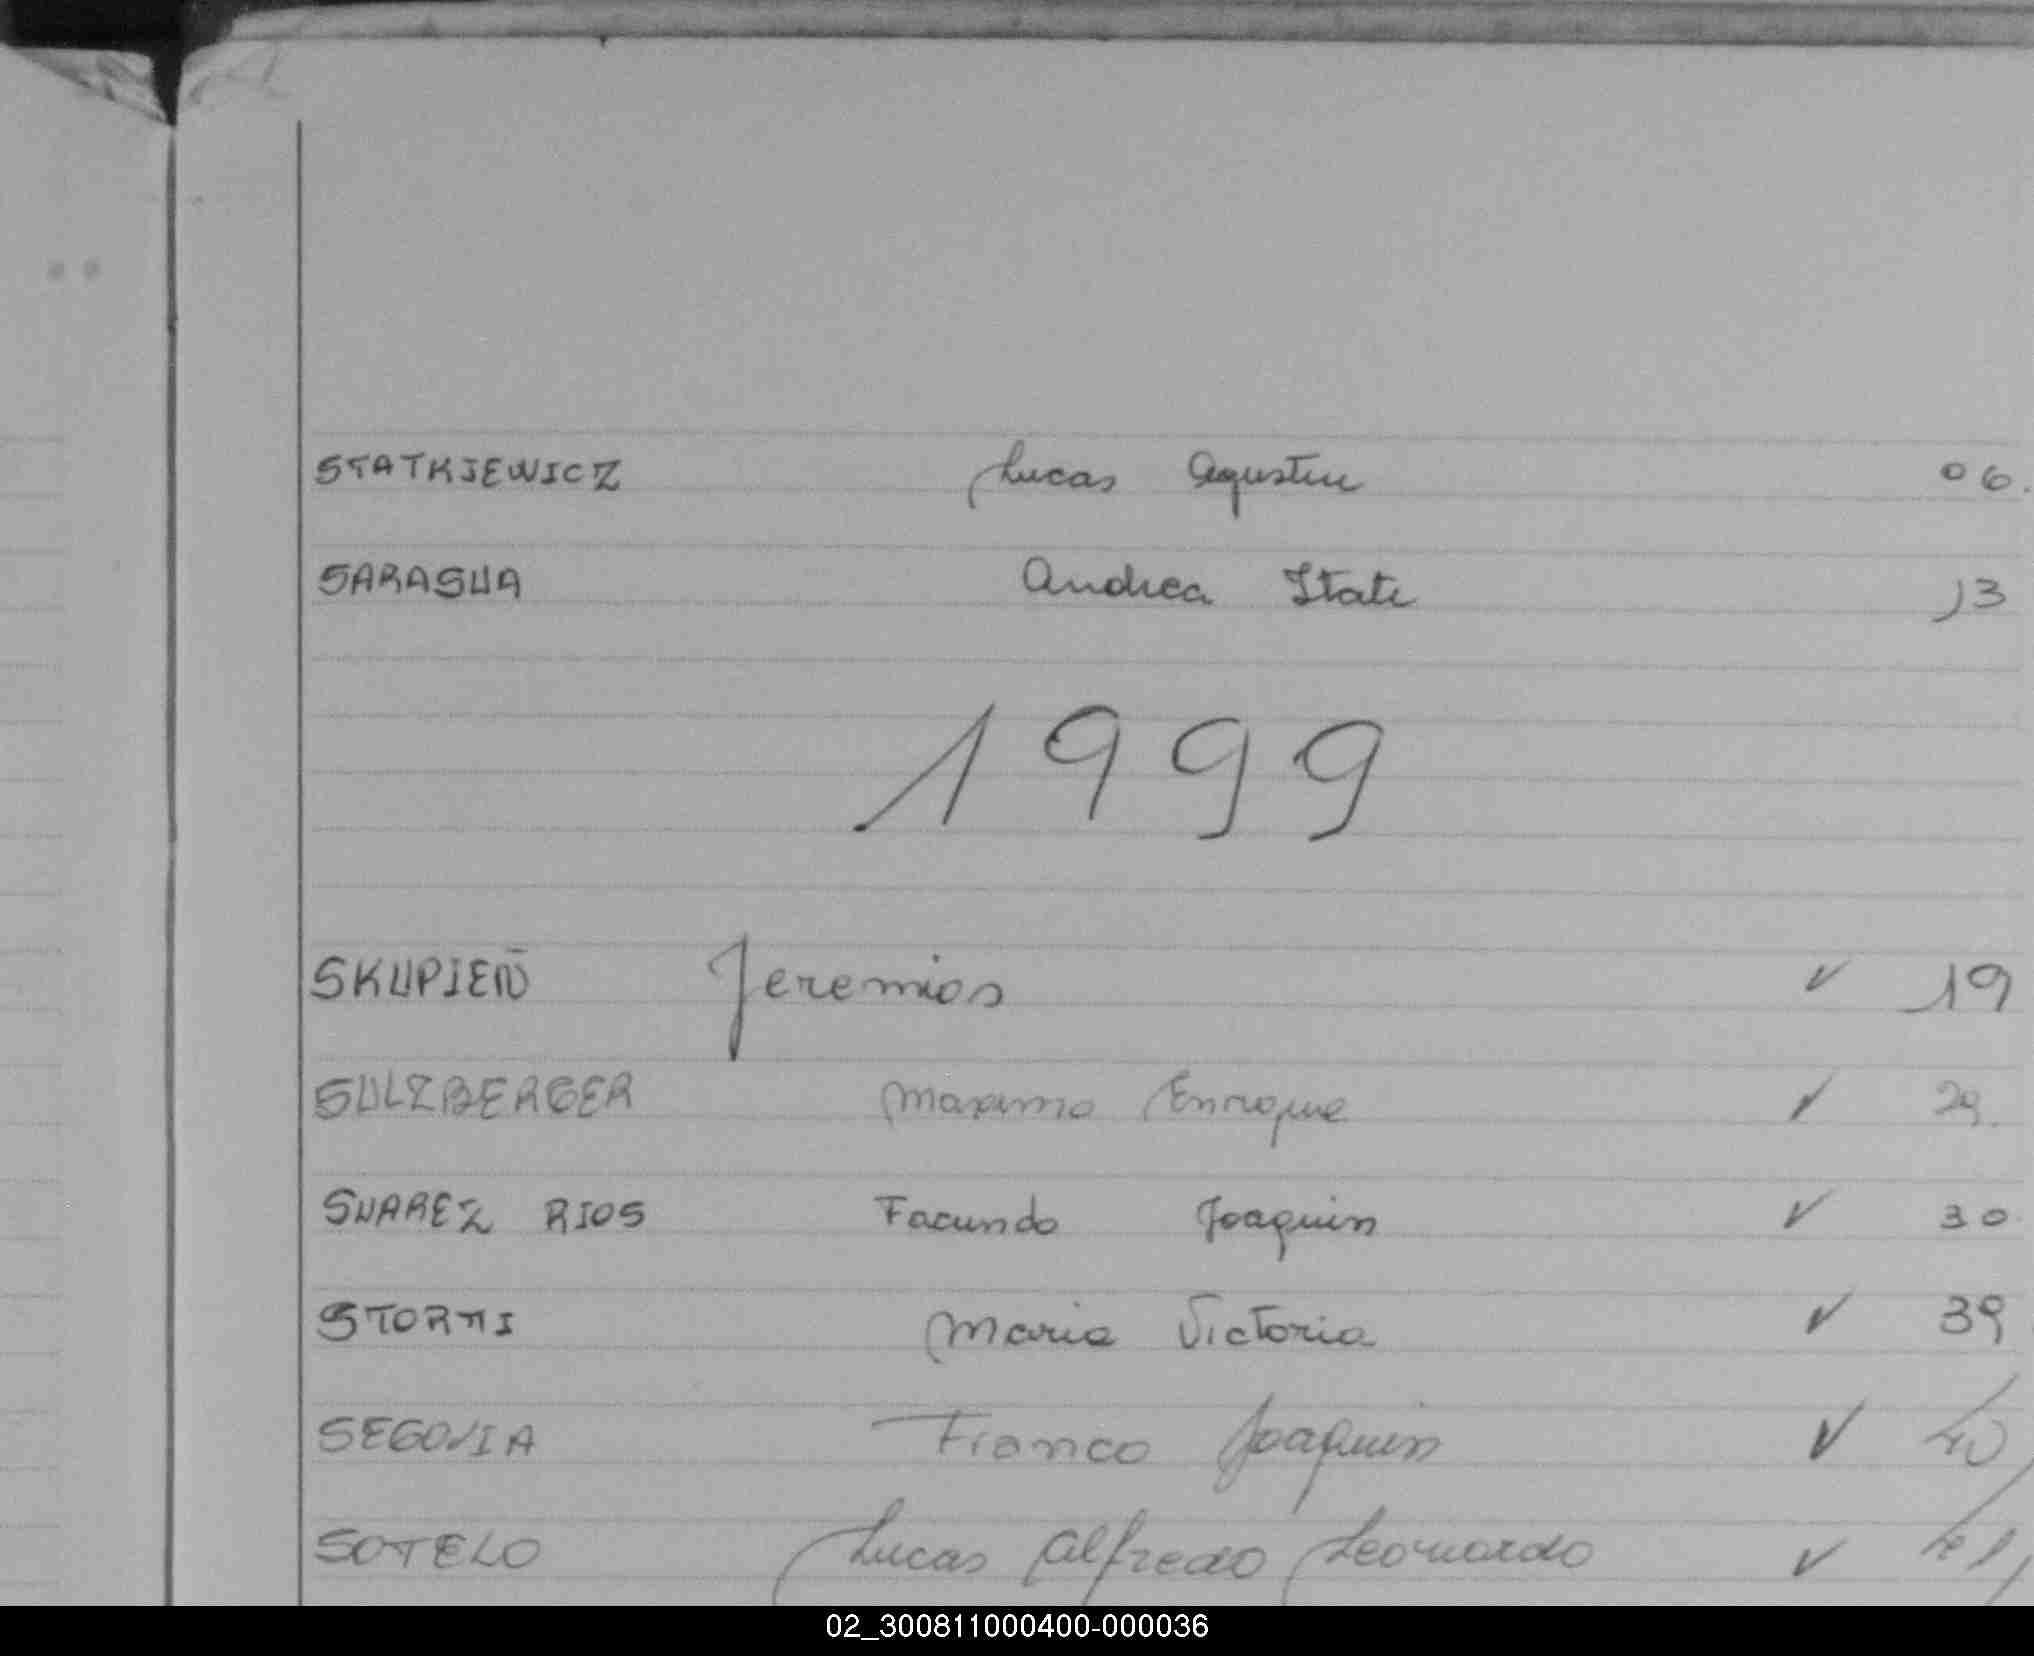 STATKIEWICZ Lucas Agustin 06.
SARASUA Andrea Itati 13
1999
SKUPIEÑ Jeremias ✓ 19
SULZBERGER Maximo Enrique ✓ 29.
SUAREZ RIOS Facundo Joaquin ✓ 30
STORNI Maria Victoria ✓ 39
SEGOVIA Franco Joaquin ✓ 40
SOTELO Lucas Alfredo Leonardo ✓
02_300811000400-000036